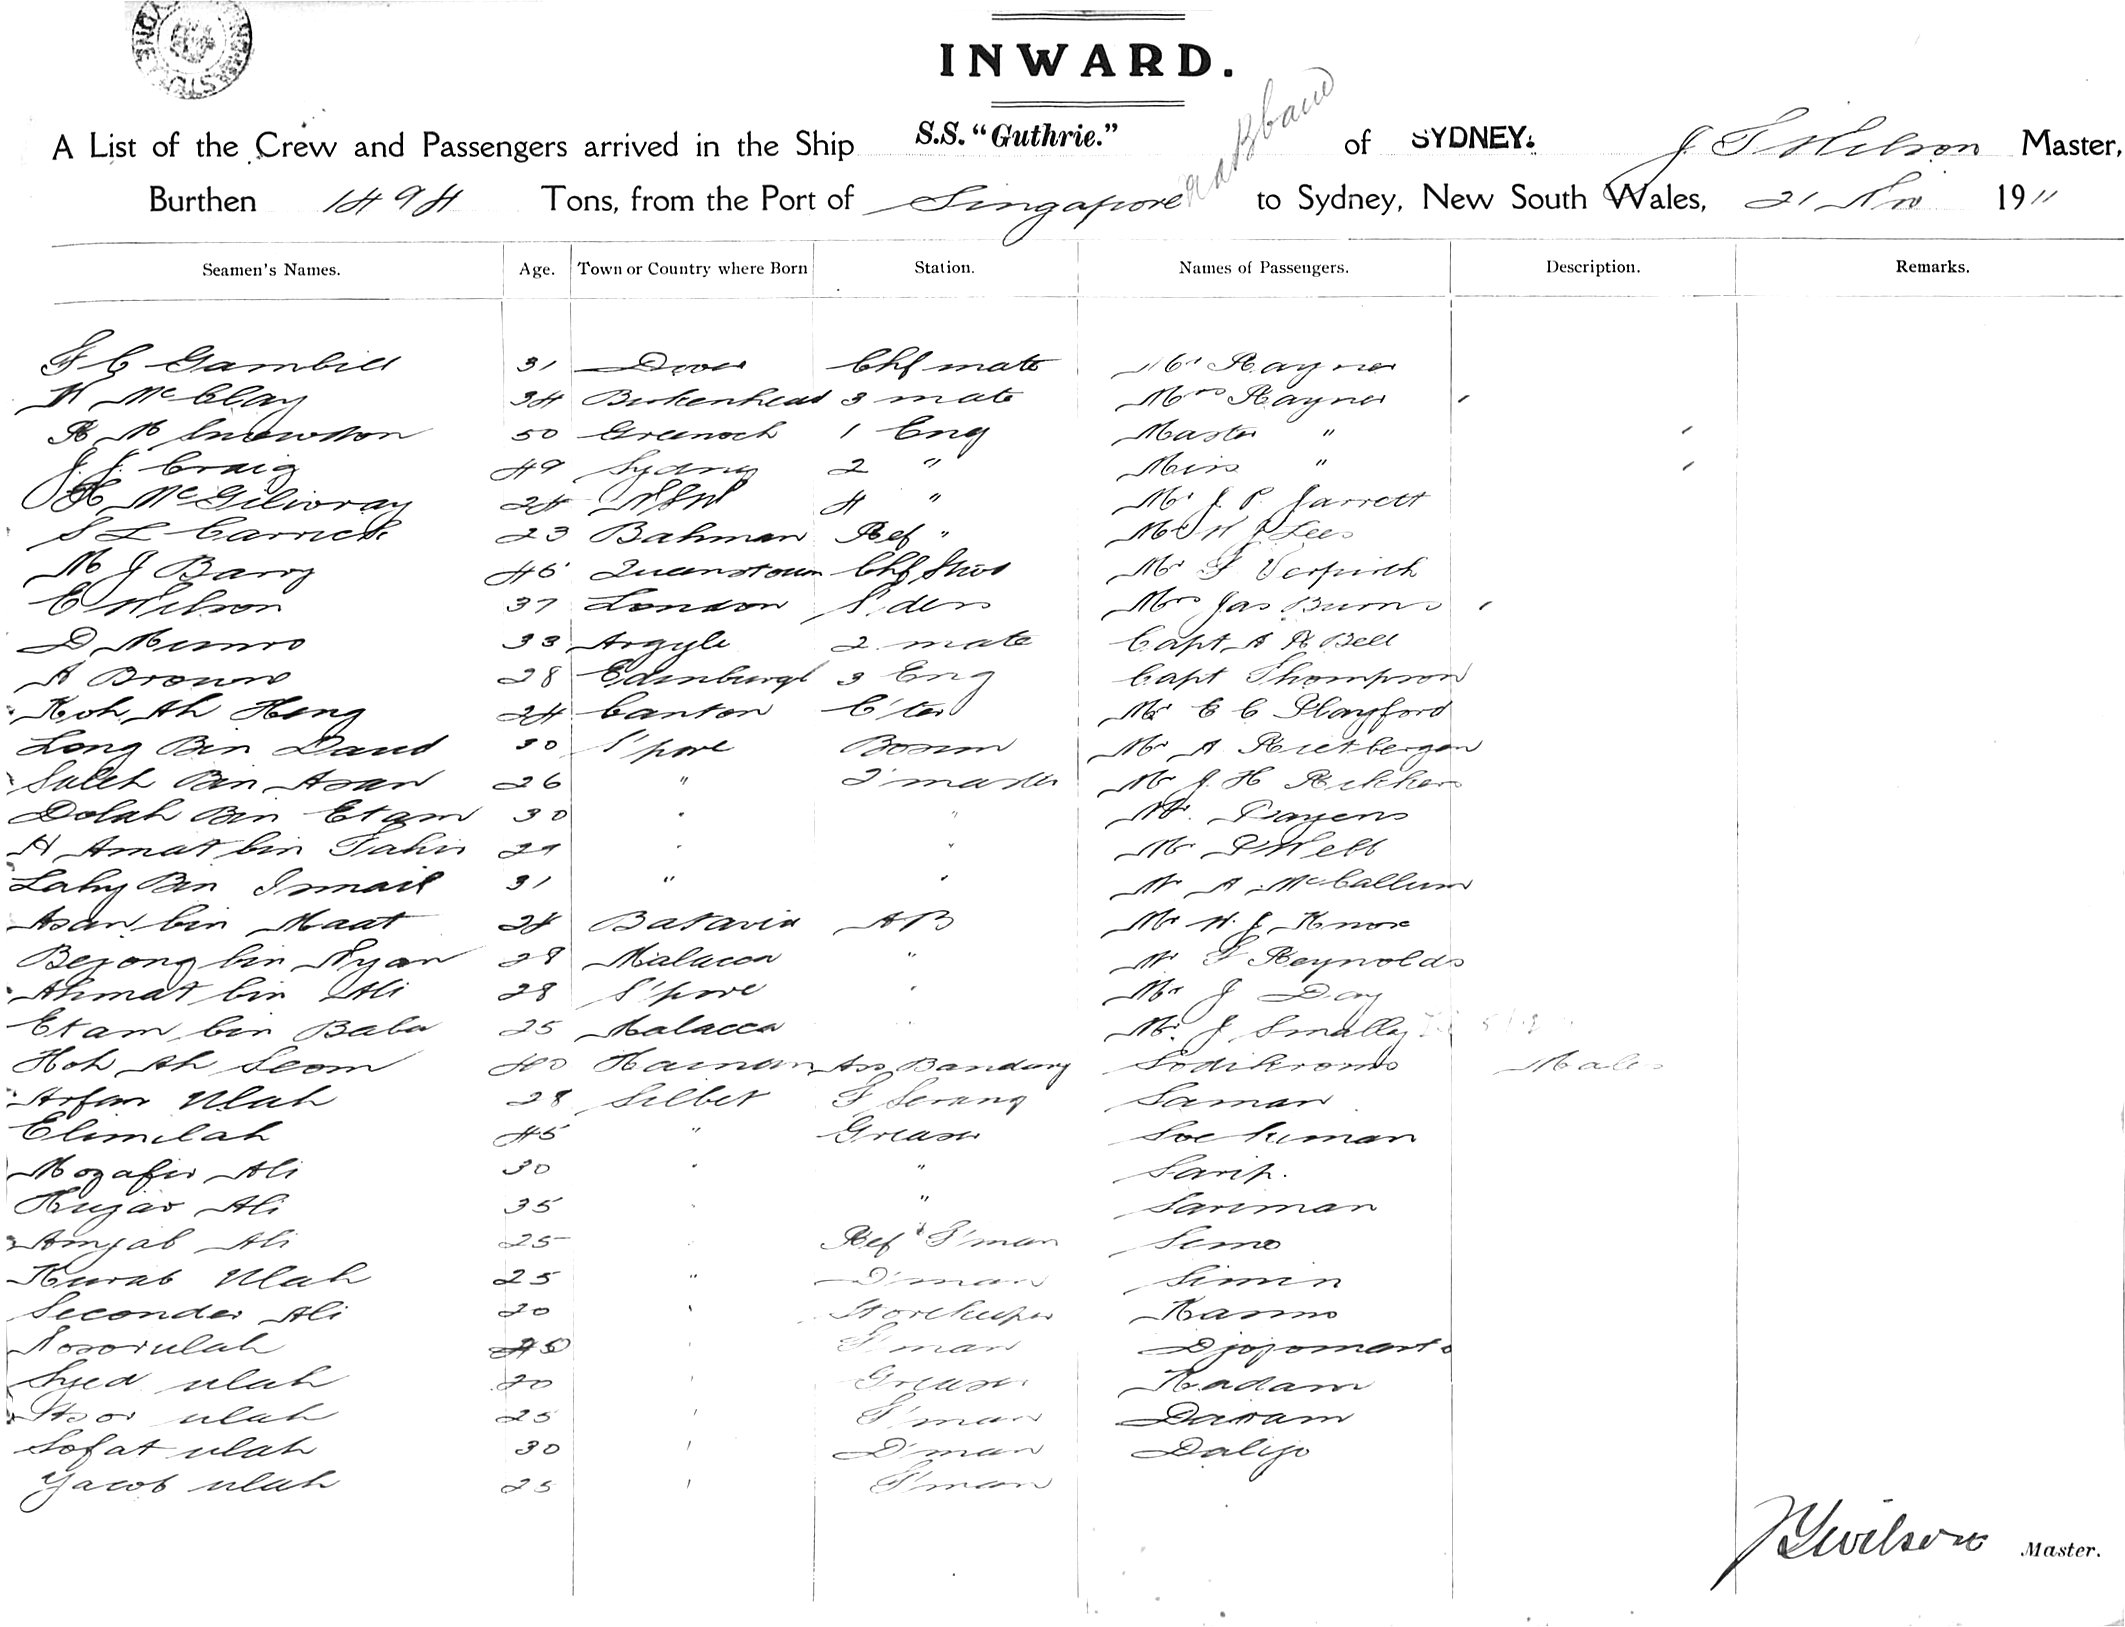 INWARD.
A List of the Crew and Passengers arrived in the Ship S.S. "Guthrie." of SYDNEY. J T Wilson Master,
Burthen 1494 Tons, from the Port of Singapore to Sydney, New South Wales, 21 Nov 1911
Seamen's Names. Age. Town or Country where Born Station. Names of Passengers. Description. Remarks.
F C Gambill 31 Dover Chf mate Mr Rayner
McClay 34 Birkenhead 3 mate Mrs Rayner
R M Snowdon 50 Greenock 1 Eng Master "
J. J. Craig 49 Sydney 2 " Miss "
McGilivray 24 NSW 4 " Mr J. P. Jarrett
S L Carrick 23 Ref " Mr W J Lees
M J Barry 45 Queenstown Chf Stwd Mr F
C Wilson 37 London S'dess Mrs Jas Burns
D Munro 33 Argyle 2 mate Capt A R Bell
A Brown 28 Edinburgh 3 Eng Capt Thompson
Koh Ah Heng 24 Canton C'ter Mr E C Playford
Long Bin Daud 30 S'pore Bosun Mr A Rietbergen
Saleh Bin Asan 26 " Mr J. H Rikkers
Dolah Bin Etam 30 " " Mr.
Amat bin Tahir 29 " " Mr P Webb
Bin Ismail 31 " " Mr A McCallum
Asan bin Maat 24 Batavia AB Mr W. J. Knox
Bejong bin Nyan 28 Malacca " Mr F Reynolds
Ahmat bin Ali 28 S'pore " Mr J Day
Etam bin Baba 25 Malacca " Mr. J Smalley
Hoh Ah Seom 40 Hainan Ass Bandary Sodikromo Males
Arfan Ulah 28 Silhet F Serang Saman
Elimilah 45 " Greaser Soekiman
Mozafir Ali 30 " " Sarip.
Kujar Ali 35 " " Sariman
Amjab Ali 25 " Ref F'man Simo
Kurab Ulah 25 " D'man Simin
Seconder Ali 20 " Storekeeper Kasimo
Nosorulah " F'man Djojomarto
Syed ulah 20 " Greaser Kadam
ulah 25 " F'man
Sofat ulah 30 " D'man Dalijo
Yacob ulah 25 " F'man
J T Wilson Master.